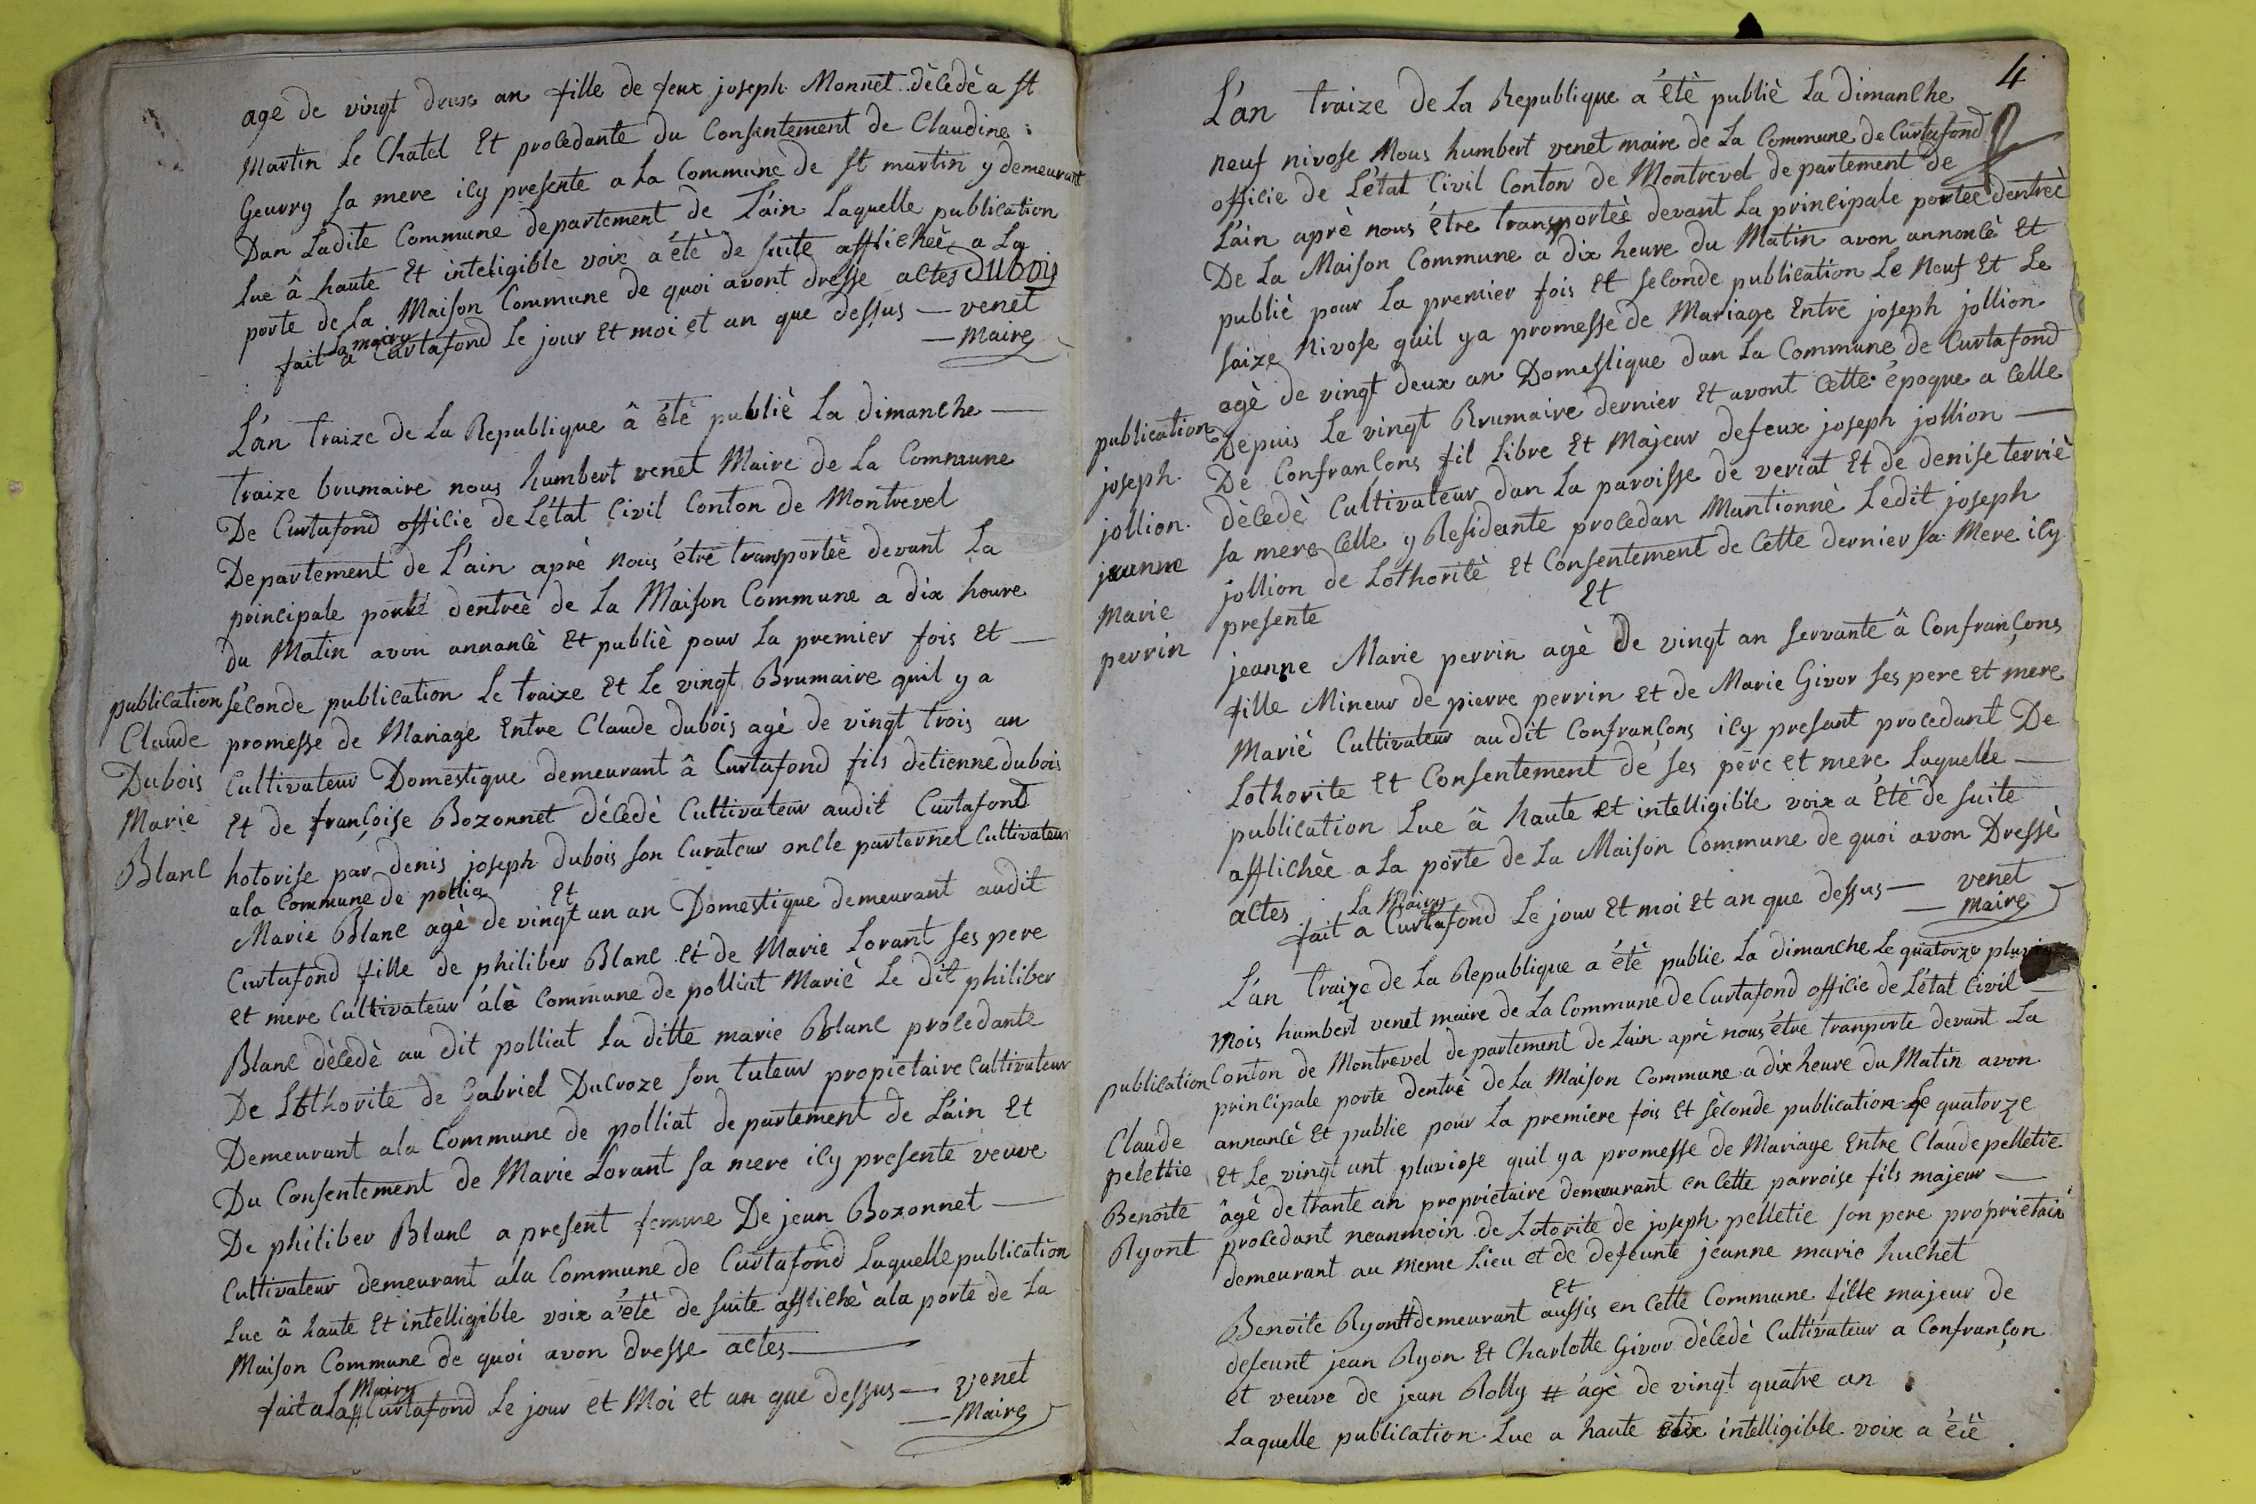 age de vingt deux an fille de feux joseph Monnet dècedè a st
Martin Le Chatel Et procedante du Consentement de Claudine
Geurry sa mere icy presente a La Commune de st martin y demeurant
Dan Ladite Commune departement de L'ain Laquelle publication
Lue â haute Et inteligible voix a étè de suite affichèe a La
porte de La Maison Commune de quoi avont dresse actes dubois
fait a La mairy Curtafond Le jour Et moi et an que dessus — venet
— Maire
L'an traize de La Republique â étè publiè La dimanche —
traize brumaire nous humbert venet Maire de La Commune
De Curtafond officie de L'état Civil Conton de Montrevel
Departement de L'ain aprè nous étre transportèè devant La
principale porte dentrèè de La Maison Commune a dix heure
du Matin avon annancè Et publiè pour La premier fois Et —
séconde publication Le traize Et Le vingt Brumaire quil y a
promesse de Mariage Entre Claude dubois agè de vingt trois an
Cultivateur Domestique demeurant â Curtafond fils detienne dubois
Et de françoise Bozonnet décedè Cultivateur audit Curtafond
hotorise par denis joseph dubois son Curateur oncle parternel Cultivateur
ala Commune de pollia
Et
Marie Blanc agè de vingt un an Domestique demeurant audit
Curtafond fille de philiber Blanc et de Marie Lorant ses pere
et mere Cultivateur álà Commune de polliat Mariè Le dit philiber
Blanc dècedè au dit polliat La ditte marie Blanc procedante
De Lothorite de Gabriel Ducroze son tuteur propietaire Cultivateur
Demeurant ala Commune de polliat departement de L'ain Et
Du Consentement de Marie Lorant sa mere icy presente veuve
De philiber Blanc a present femme De jean Bozonnet —
Cultivateur demeurant ala Commune de Curtafond Laquelle publication
Lue â haute Et intelligible voix a'étè de suite affichè ala porte de La
Maison Commune de quoi avon dresse actes —
fait a La Mairy Curtafond Le jour et Moi et an que dessus — venet
— Maire
publication
Claude
Dubois
Marie
Blanc
4
L'an traize de La Republique a étè publiè La dimanche
neuf nivose Nous humbert venet maire de La Commune de Curtafond
officie de L'état Civil Conton de Montrevel departement de
L'ain aprè nous étre transportèè devant La principale portee dentreè
De La Maison Commune a dix heure du Matin avon annoncè Et
publiè pour La premier fois Et seconde publication Le Neuf Et Le
saize Nivose quil ya promesse de Mariage Entre joseph jollion
agè de vingt deux an Domestique dan La Commune de Curtafond
Depuis Le vingt Brumaire dernier Et avont Cette époque a Celle
De Confrancons fil Libre Et Majeur defeux joseph jollion —
dècedè Cultivateur dan La paroisse de veriat Et de denise terriè
sa mere Celle y Residante procedan Mantionnè Ledit joseph
jollion de Lothoritè Et Consentement de Cette dernier sa Mere icy
presente
Et
jeanne Marie perrin agè De vingt an servante â Confrançons
fille Mineur de pierre perrin et de Marie Givor ses pere et mere
Mariè Cultivateur audit Confrançons icy presant procedant De
Lothorite Et Consentement de ses père et mere Laquelle —
publication Lue â haute et intelligible voix a étè de suite
affichèe a La porte de La Maison Commune de quoi avon Dressè
actes
fait a La Mairy Curtafond Le jour Et moi Et an que dessus — venet
— maire
publication
joseph
jollion
jeanne
Marie
perrin
L'an traize de La Republique a étè publie La dimanche Le quatorze
mois humbert venet maire de La Commune de Curtafond officie de L'état Civil
Conton de Montrevel departement de Lain aprè nous étre tranporte devant La
principale porte dentrè de La Maison Commune a dix heure du Matin avon
annancè Et publie pour La premiere fois Et sèconde publication Le quatorze
Et Le vingt unt pluviose quil ya promesse de Mariage Entre Claude pelletie
âgè de trante an proprietaire demeurant en Cette parroise fils majeur —
procedant neanmoin de Lotorite de joseph pelletie son pere proprietair
demeurant au meme Lieu et de defeunte jeanne marie huchet
Et
Benoite Ryont#demeurant aussis en Cette Commune fille majeur de
defeunt jean Ryon Et Charlotte Givor dècedè Cultivateur a Confrançon
et veuve de jean Rolly # agè de vingt quatre an
Laquelle publication Lue a haute intelligible voix a étè
publication
Claude
pelettie
Benoite
Ryont